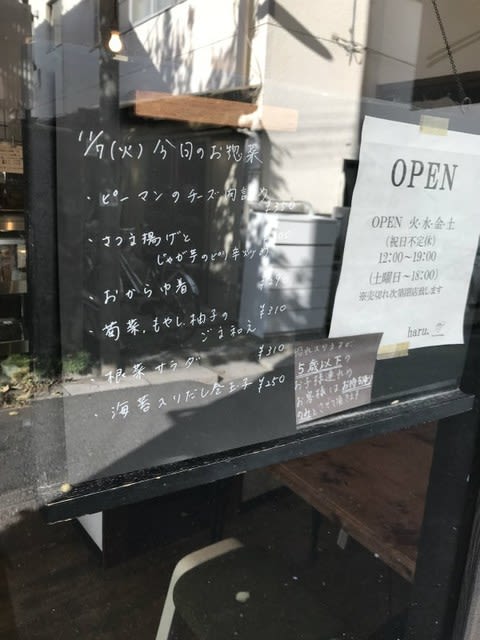 11/7(火) 今日のお惣菜
・ピーマンのチーズ肉詰め
¥350
・さつま揚げと
じゃが芋のピリ辛
・おから巾着
・菊菜、もやし、柚子の
ごま和え ¥310
・根菜サラダ ¥310
・海苔入りだし巻玉子 ¥250
OPEN
OPEN 火・水・金・土
(祝日不定休)
12:00〜19:00
(土曜日〜18:00)
※売切れ次第閉店致します
haru.
5歳以下の
お子様連れの
お客様は